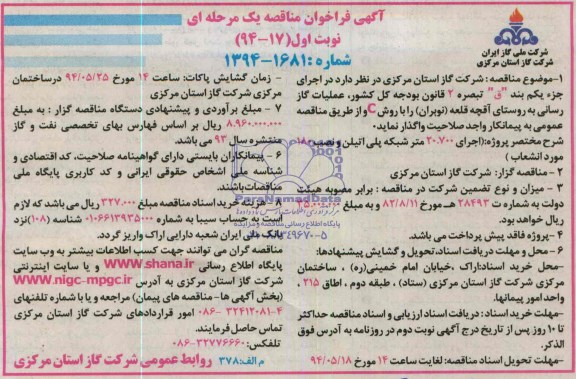 آگهی فراخوان مناقصه یک مرحله ای
نوبت اول(۱۷-۹۴)
شماره :۱۶۸۱-۱۳۹۴
شرکت ملی گاز ایران
شرکت گاز استان مرکزی
۱-موضوع مناقصه : شرکت گاز استان مرکزی در نظر دارد در اجرای
جزء یکم بند "ق" تبصره ۲ قانون بودجه کل کشور، عملیات گاز
رسانی به روستای آقچه قلعه (نوبران) را با روش C و از طریق مناقصه
عمومی به پیمانکار واجد صلاحیت واگذار نماید.
شرح مختصر پروژه:(اجرای ۲۰.۷۰۰ متر شبکه پلی اتیلن و نصب ۱۸۰
مورد انشعاب )
۲- مناقصه گزار: شرکت گاز استان مرکزی
۳ - میزان و نوع تضمین شرکت در مناقصه : برابر مصوبه هیئت
دولت به شماره ت ۲۸۴۹۳ هـ مورخ ۸۲/۸/۱۱ و به مبلغ
ریال خواهد بود.
۴-پروژه فاقد پیش پرداخت می باشد.
۶- محل و مهلت دریافت اسناد، تحویل و گشایش پیشنهادها:
-محل خرید اسناد:اراک ،خیابان امام خمینی(ره) ، ساختمان
مرکزی شرکت گاز استان مرکزی (ستاد) ، طبقه دوم ، اطاق ۲۱۵ ،
واحد امور پیمانها.
-مهلت خرید اسناد : دریافت اسناد ارزیابی و اسناد مناقصه حداکثر
تا ۱۰ روز پس از تاریخ درج آگهی نوبت دوم در روزنامه به آدرس فوق
الذکر.
-مهلت تحویل اسناد مناقصه: لغایت ساعت ۱۴ مورخ ۹۴/۰۵/۱۸
- زمان گشایش پاکات: ساعت ۱۴ مورخ ۹۴/۰۵/۲۵ درساختمان
مرکزی شرکت گاز استان مرکزی
۷ - مبلغ برآوردی و پیشنهادی دستگاه مناقصه گزار : به مبلغ
۸.۹۶۰.۰۰۰.۰۰۰ ریال بر اساس فهارس بهای تخصصی نفت و گاز
منتشره سال ۹۳ می باشد.
۶ - پیمانکاران بایستی دارای گواهینامه صلاحیت، کد اقتصادی و
شناسه ملی اشخاص حقوقی ایرانی و کد کاربری پایگاه ملی
مناقصات باشند.
۸-هزینه خرید اسناد مناقصه مبلغ ۳۲۷.۰۰۰ ریال می باشد که لازم
است به حساب سیبا به شماره ۰۱۰۶۶۱۳۹۳۵۰۰۰ شناسه (۱۰۸)نزد
بانک ملی ایران شعبه دارایی اراک واریز گردد.
مناقصه گران می توانند جهت کسب اطلاعات بیشتر به وب سایت
پایگاه اطلاع رسانی WWW.shana.ir و یا سایت اینترنتی
شرکت گاز استان مرکزی به آدرس WWW.nigc-mpgc.ir
(بخش آگهی ها-مناقصه های پیمان) مراجعه و یا با شماره تلفنهای
۴-۳۲۴۱۲۰۸۱-۰۸۶ امور قراردادهای شرکت گاز استان مرکزی
تماس حاصل فرمایند.
تلفکس: ۳۲۷۷۶۶۶۰-۰۸۶
م الف:۳۷۸ روابط عمومی شرکت گاز استان مرکزی
ParaNamadData